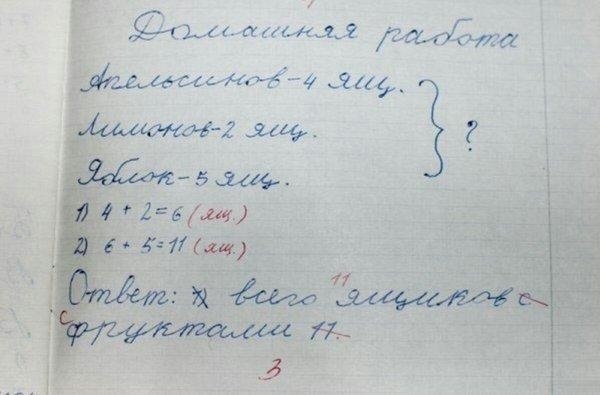 Домашняя работа
Апельсинов-4 ящ.
Лимонов-2 ящ.
Яблок-5 ящ.
?
1) 4 + 2 = 6 (ящ.)
2) 6 + 5 = 11 (ящ.)
Ответ: всего 11 ящиков с
с фруктами 11.
3